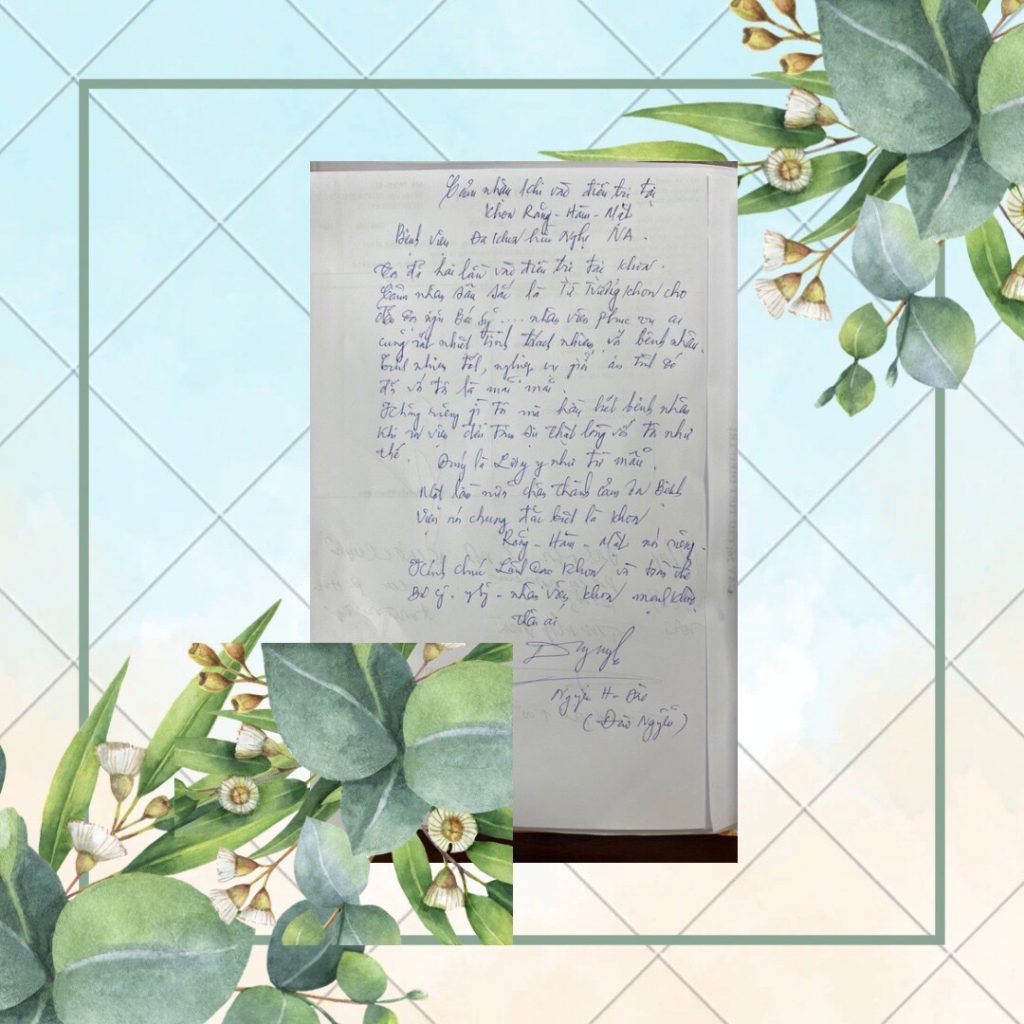 Cảm nhận khi vào điều trị tại
khoa Răng - Hàm - Mặt
Bệnh viện Đa khoa hữu Nghị NA.
hai lần vào điều trị tại khoa.
Cảm nhận sâu sắc là Từ Trưởng khoa cho
đội ngũ Bác sỹ .... nhân viên phục vụ ai
cũng rất nhiệt tình trách nhiệm với bệnh nhân.
nhiệm tốt, nghiệp vụ giỏi ấn tượng đó
đối với tôi là mãi mãi.
Không riêng gì tôi mà hầu hết bệnh nhân
khi ra viện đều tâm sự thật lòng với tôi như
thế. Đúng là Lương y như từ mẫu.
Một lần nữa chân thành cảm ơn Bệnh
Viện nói chung đặc biệt là khoa
Răng - Hàm - Mặt nói riêng.
Kính chúc Lãnh đạo khoa và toàn thể
Bác sỹ - y tá - nhân viên khoa mạnh khỏe
thân ái
Nguyễn H- Đào
(Đào Nguyễn)